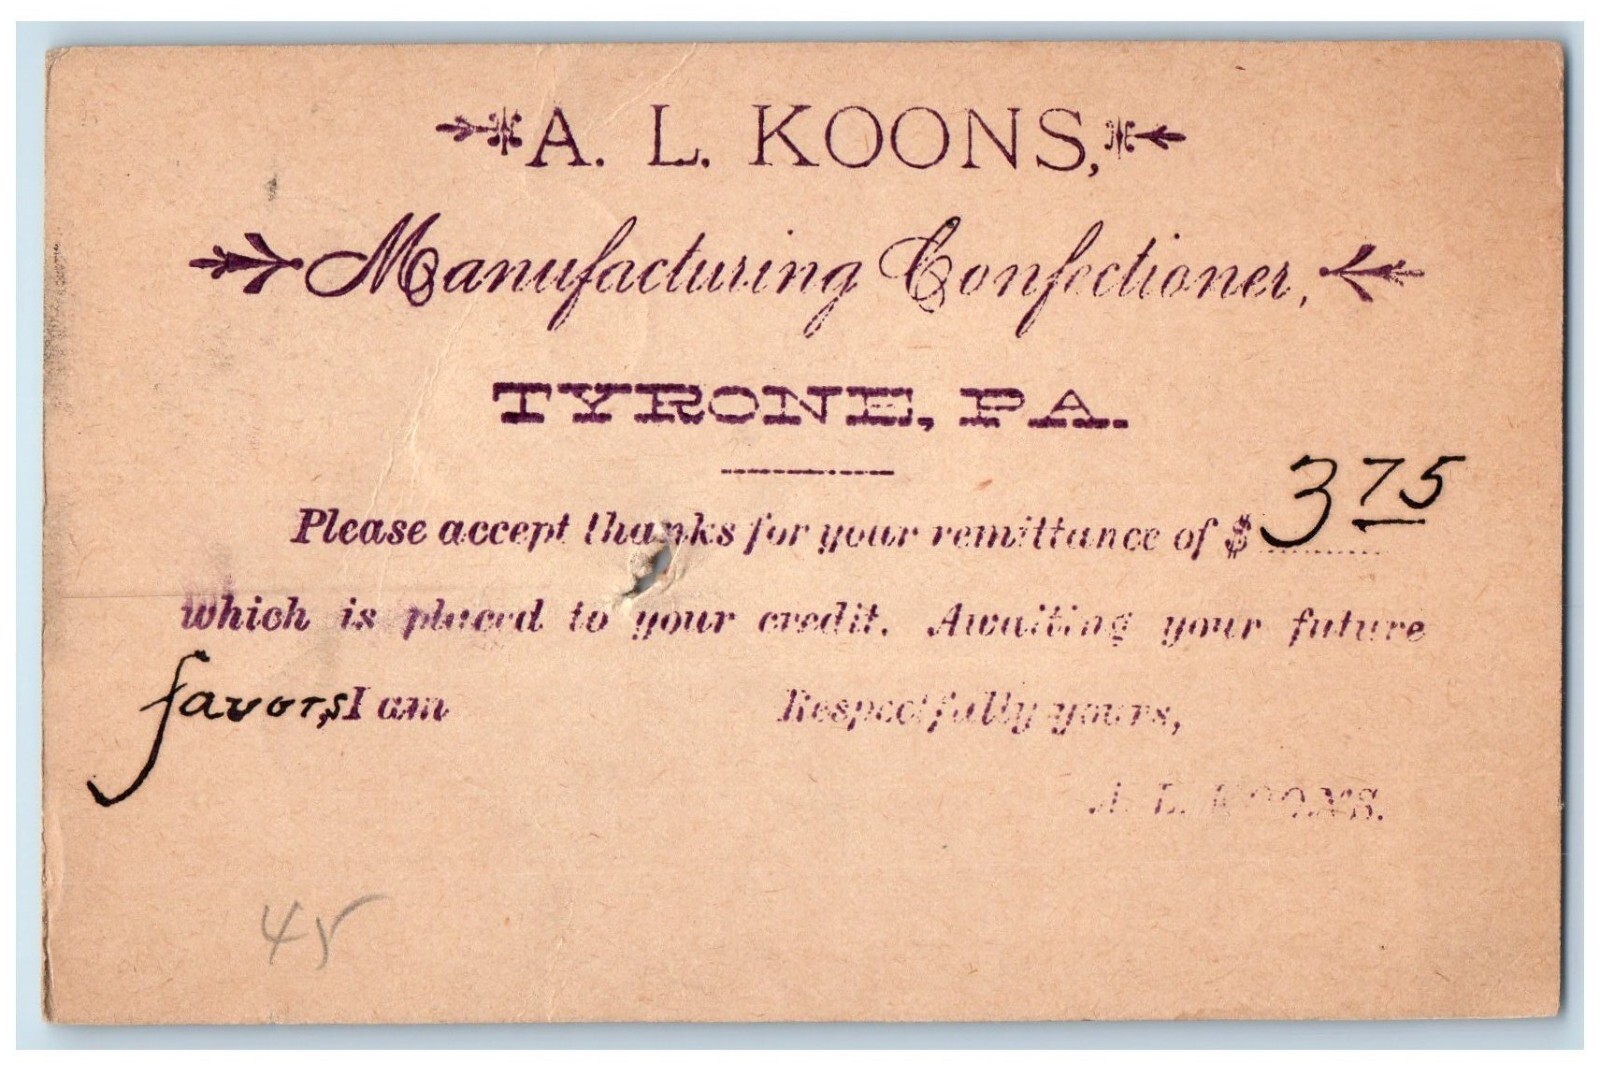 A. L. KOONS,
Manufacturing Confectioner,
TYRONE, PA.
Please accept thanks for your remittance of $ 3 75
which is placed to your credit. Awaiting your future
favors, I am Respectfully yours,
A. L. KOONS.
45